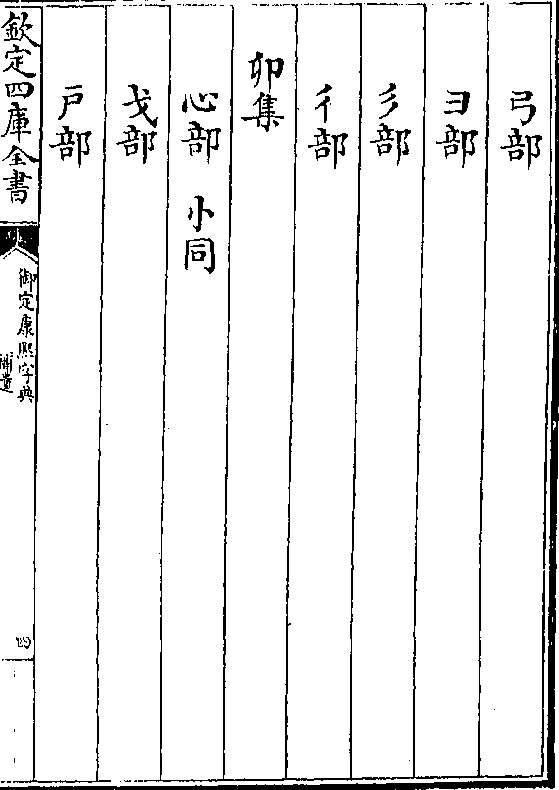 弓部
彐部
彡部
彳部
卯集
心部 㣺同
戈部
戶部
欽定四庫全書
御定康熙字典
補遺
四